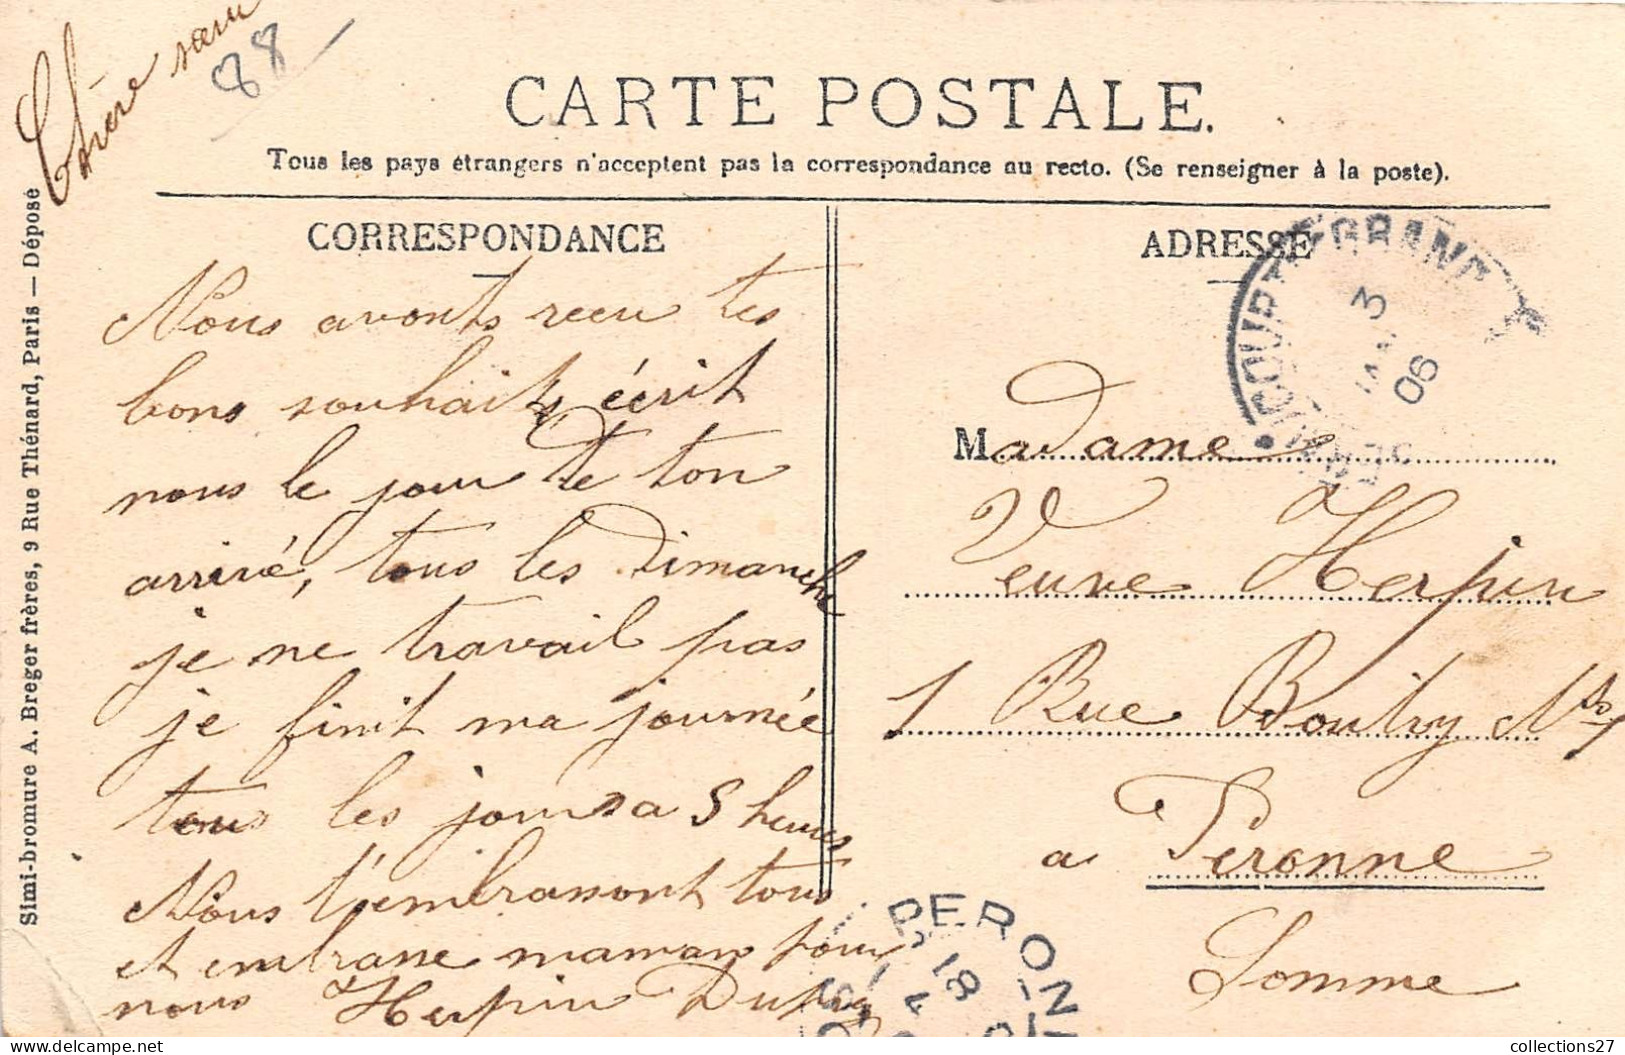 Chère sœur
88
CARTE POSTALE.
Tous les pays étrangers n'acceptent pas la correspondance au recto. (Se renseigner à la poste).
CORRESPONDANCE
Nous avonts recu tes
bons souhaits écrit
nous le jour de ton
arrivé, tous les dimanche
je ne travail pas
je finit ma journée
tous les jours a 5 heures
Nous t'embrassont tous
et embrasse maman pour
nous Herpin
ADRESSE
COURT GRAND
3
06
Madame
Veuve Herpin
1 Rue Boulry
a Peronne
Somme
PERONN
18
4
Simi-bromure A. Breger frères, 9 Rue Thénard, Paris — Déposé
collections27